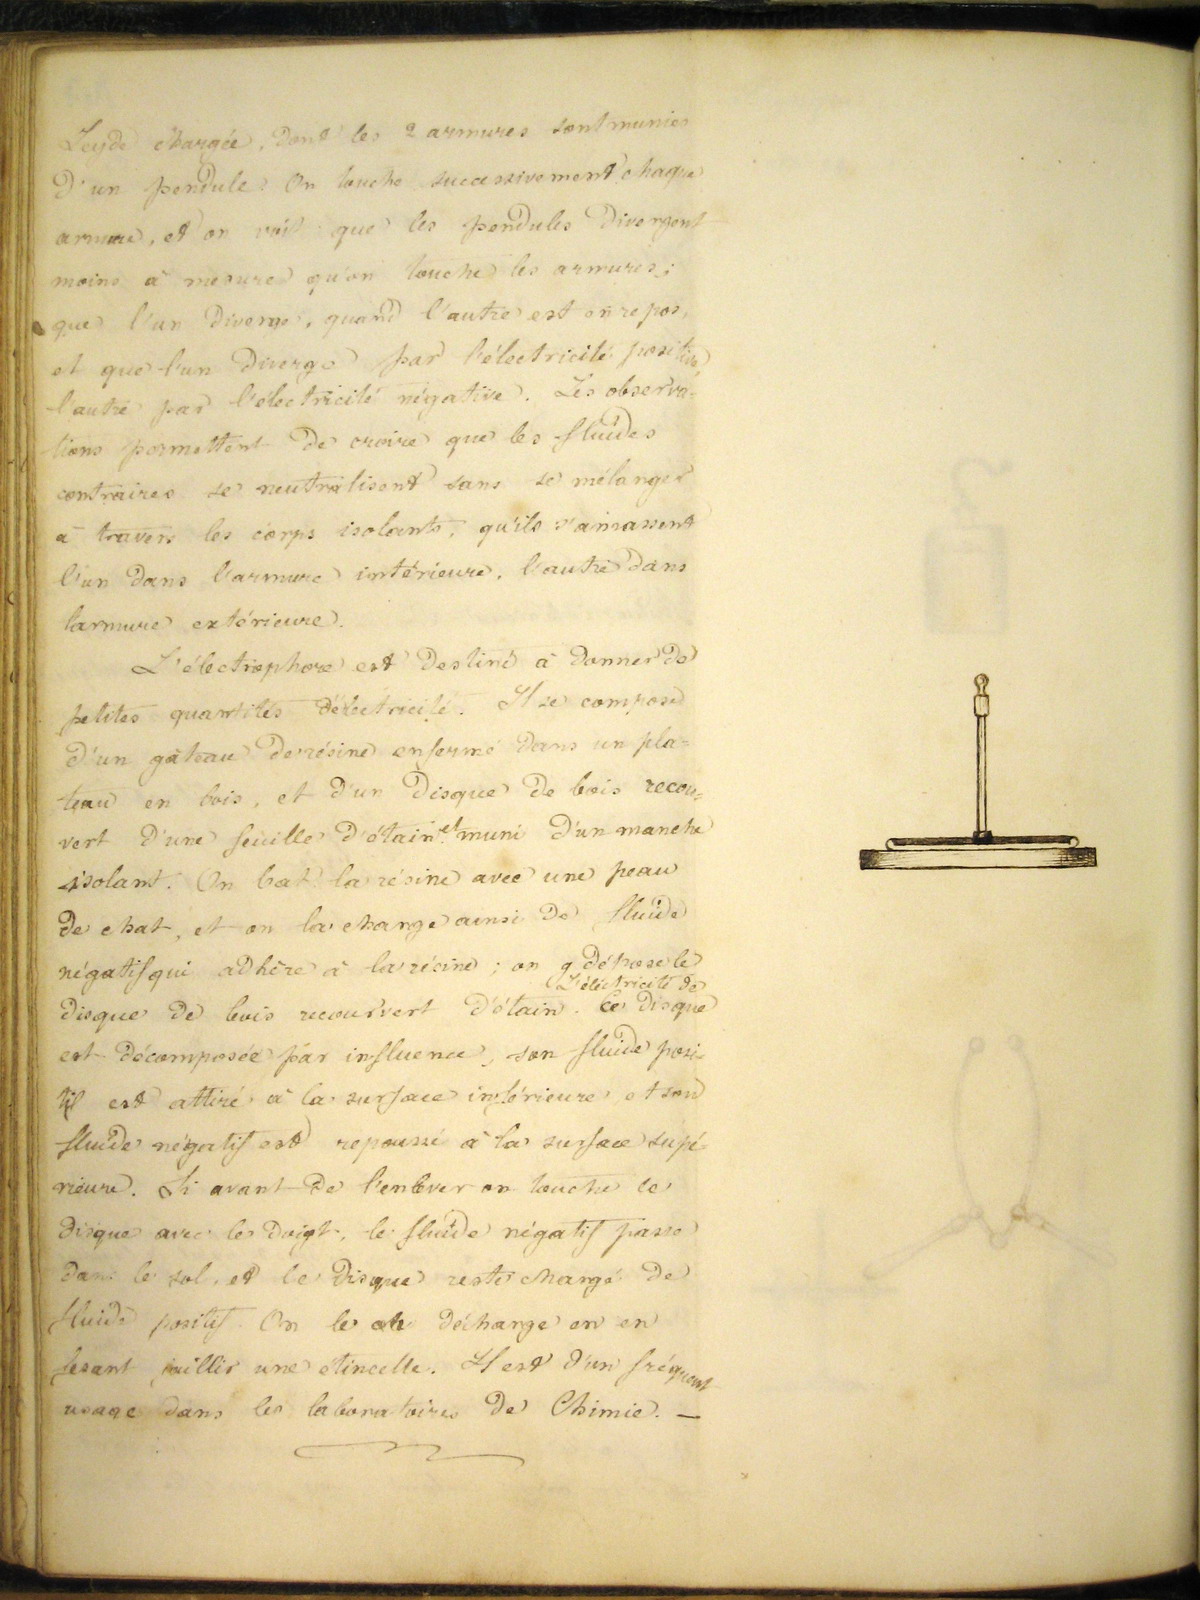 Leyde chargée, dont les 2 armures sont munies
d'un pendule. On touche successivement chaque
armure, et on voit que les pendules divergent
moins à mesure qu'on touche les armures;
que l'un diverge, quand l'autre est en repos,
et que l'un diverge par l'électricité positive
l'autre par l'électricité négative. Les observa-
tions permettent de croire que les fluides
contraires se neutralisent sans se mélanger
à travers les corps isolants, qu'ils s'amassent
l'un dans l'armure intérieure, l'autre dans
larmure extérieure.
L'électrophore est destiné à donner de
petites quantités d'électricité. Il se compose
d'un gâteau de résine enfermé dans un pla=
teau en bois, et d'un disque de bois recou=
vert d'une feuille d'étain et muni d'un manche
isolant. On bat la résine avec une peau
de chat, et on la charge ainsi de fluide
négatif qui adhère à la résine; on y dépose le
disque de bois recouvert d'étain. L'électricité de
ce disque
est décomposée par influence, son fluide posi-
tif est attiré à la surface inférieure, et son
fluide négatif est repoussé à la surface supé-
rieure. Si avant de l'enlever on touche le
disque avec le doigt, le fluide négatif passe
dans le sol, et le disque reste chargé de
fluide positif. On le décharge en en
fesant jaillir une étincelle. Il est d'un fréquent
usage dans les laboratoires de Chimie. —